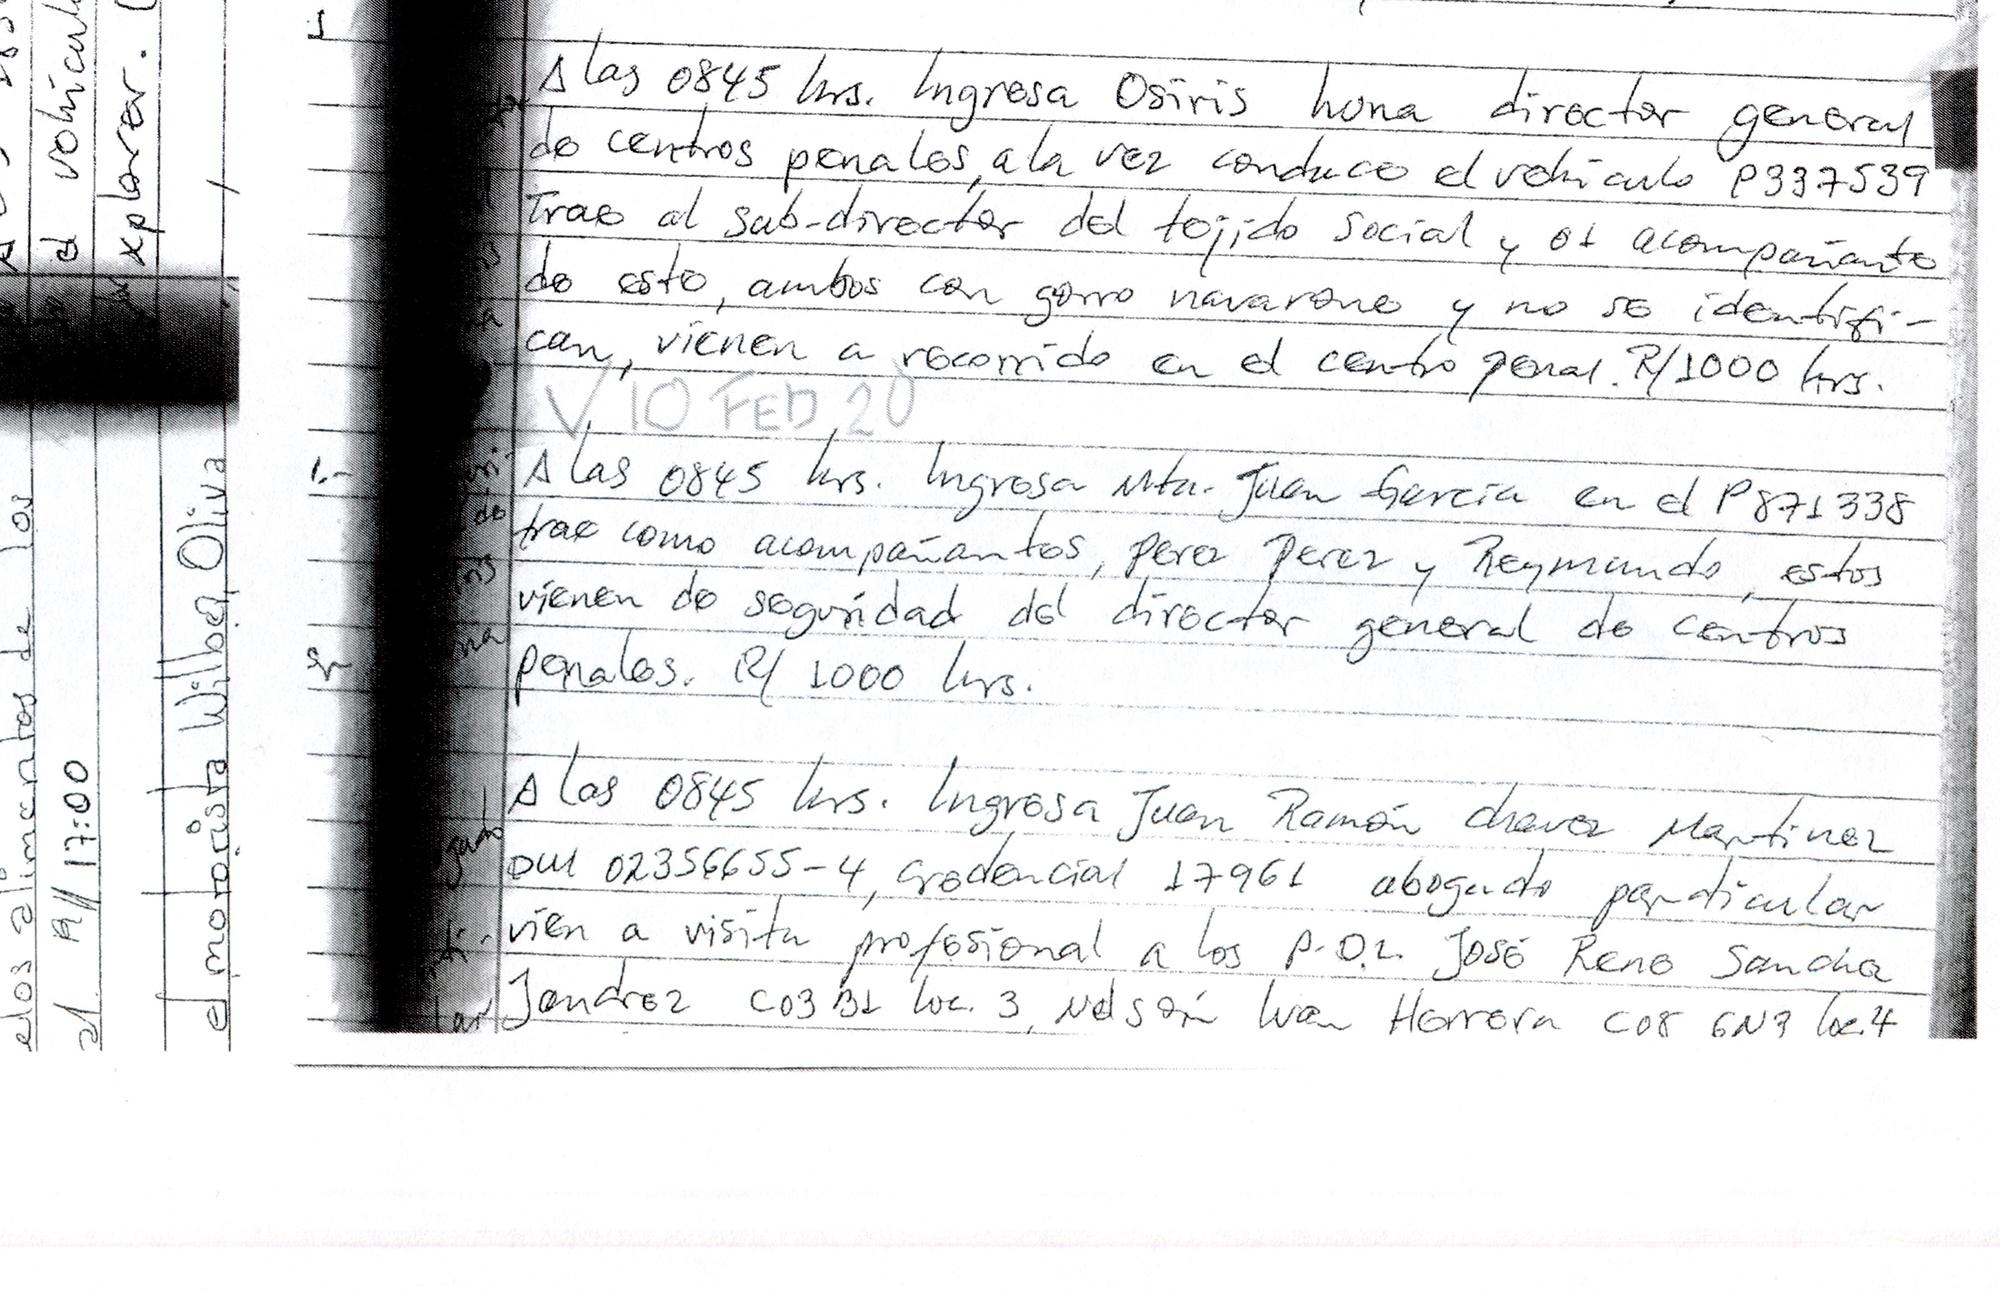 A las 0845 hrs. Ingresa Osiris luna director general
de centros penales, a la vez conduce el vehiculo P337539
Trae al sub-director del tejido social y 01 acompañante
de este, ambos con gorro navarone y no se identifi-
can, vienen a recorrido en el centro penal. R/1000 hrs.
V 10 FEB 20
A las 0845 hrs. Ingresa Mta. Juan Garcia en el P871338
trae como acompañantes, perez Perez y Reymundo, estos
vienen de seguridad del director general de centros
penales. R/ 1000 hrs.
A las 0845 hrs. Ingresa Juan Ramón chavez Martinez
DUI 02356655-4, credencial 17961 abogado particular
vien a visita profesional a los P.D.L. José Rene Sanchez
C03 B1 loc. 3, Nelson Ivan Herrera C08 6N3 loc.4
el vehicul
xplorer.
elos alimentos de los
el R// 17:00
el motorista Wilber Oliva